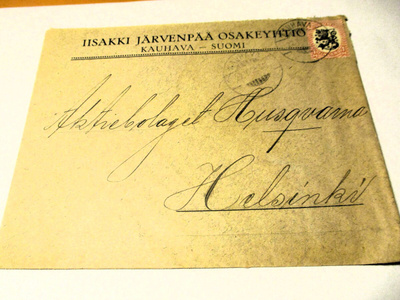 IISAKKI JÄRVENPÄÄ OSAKEYHTIÖ
KAUHAVA — SUOMI
Aktiebolaget Husqvarna
Helsinki